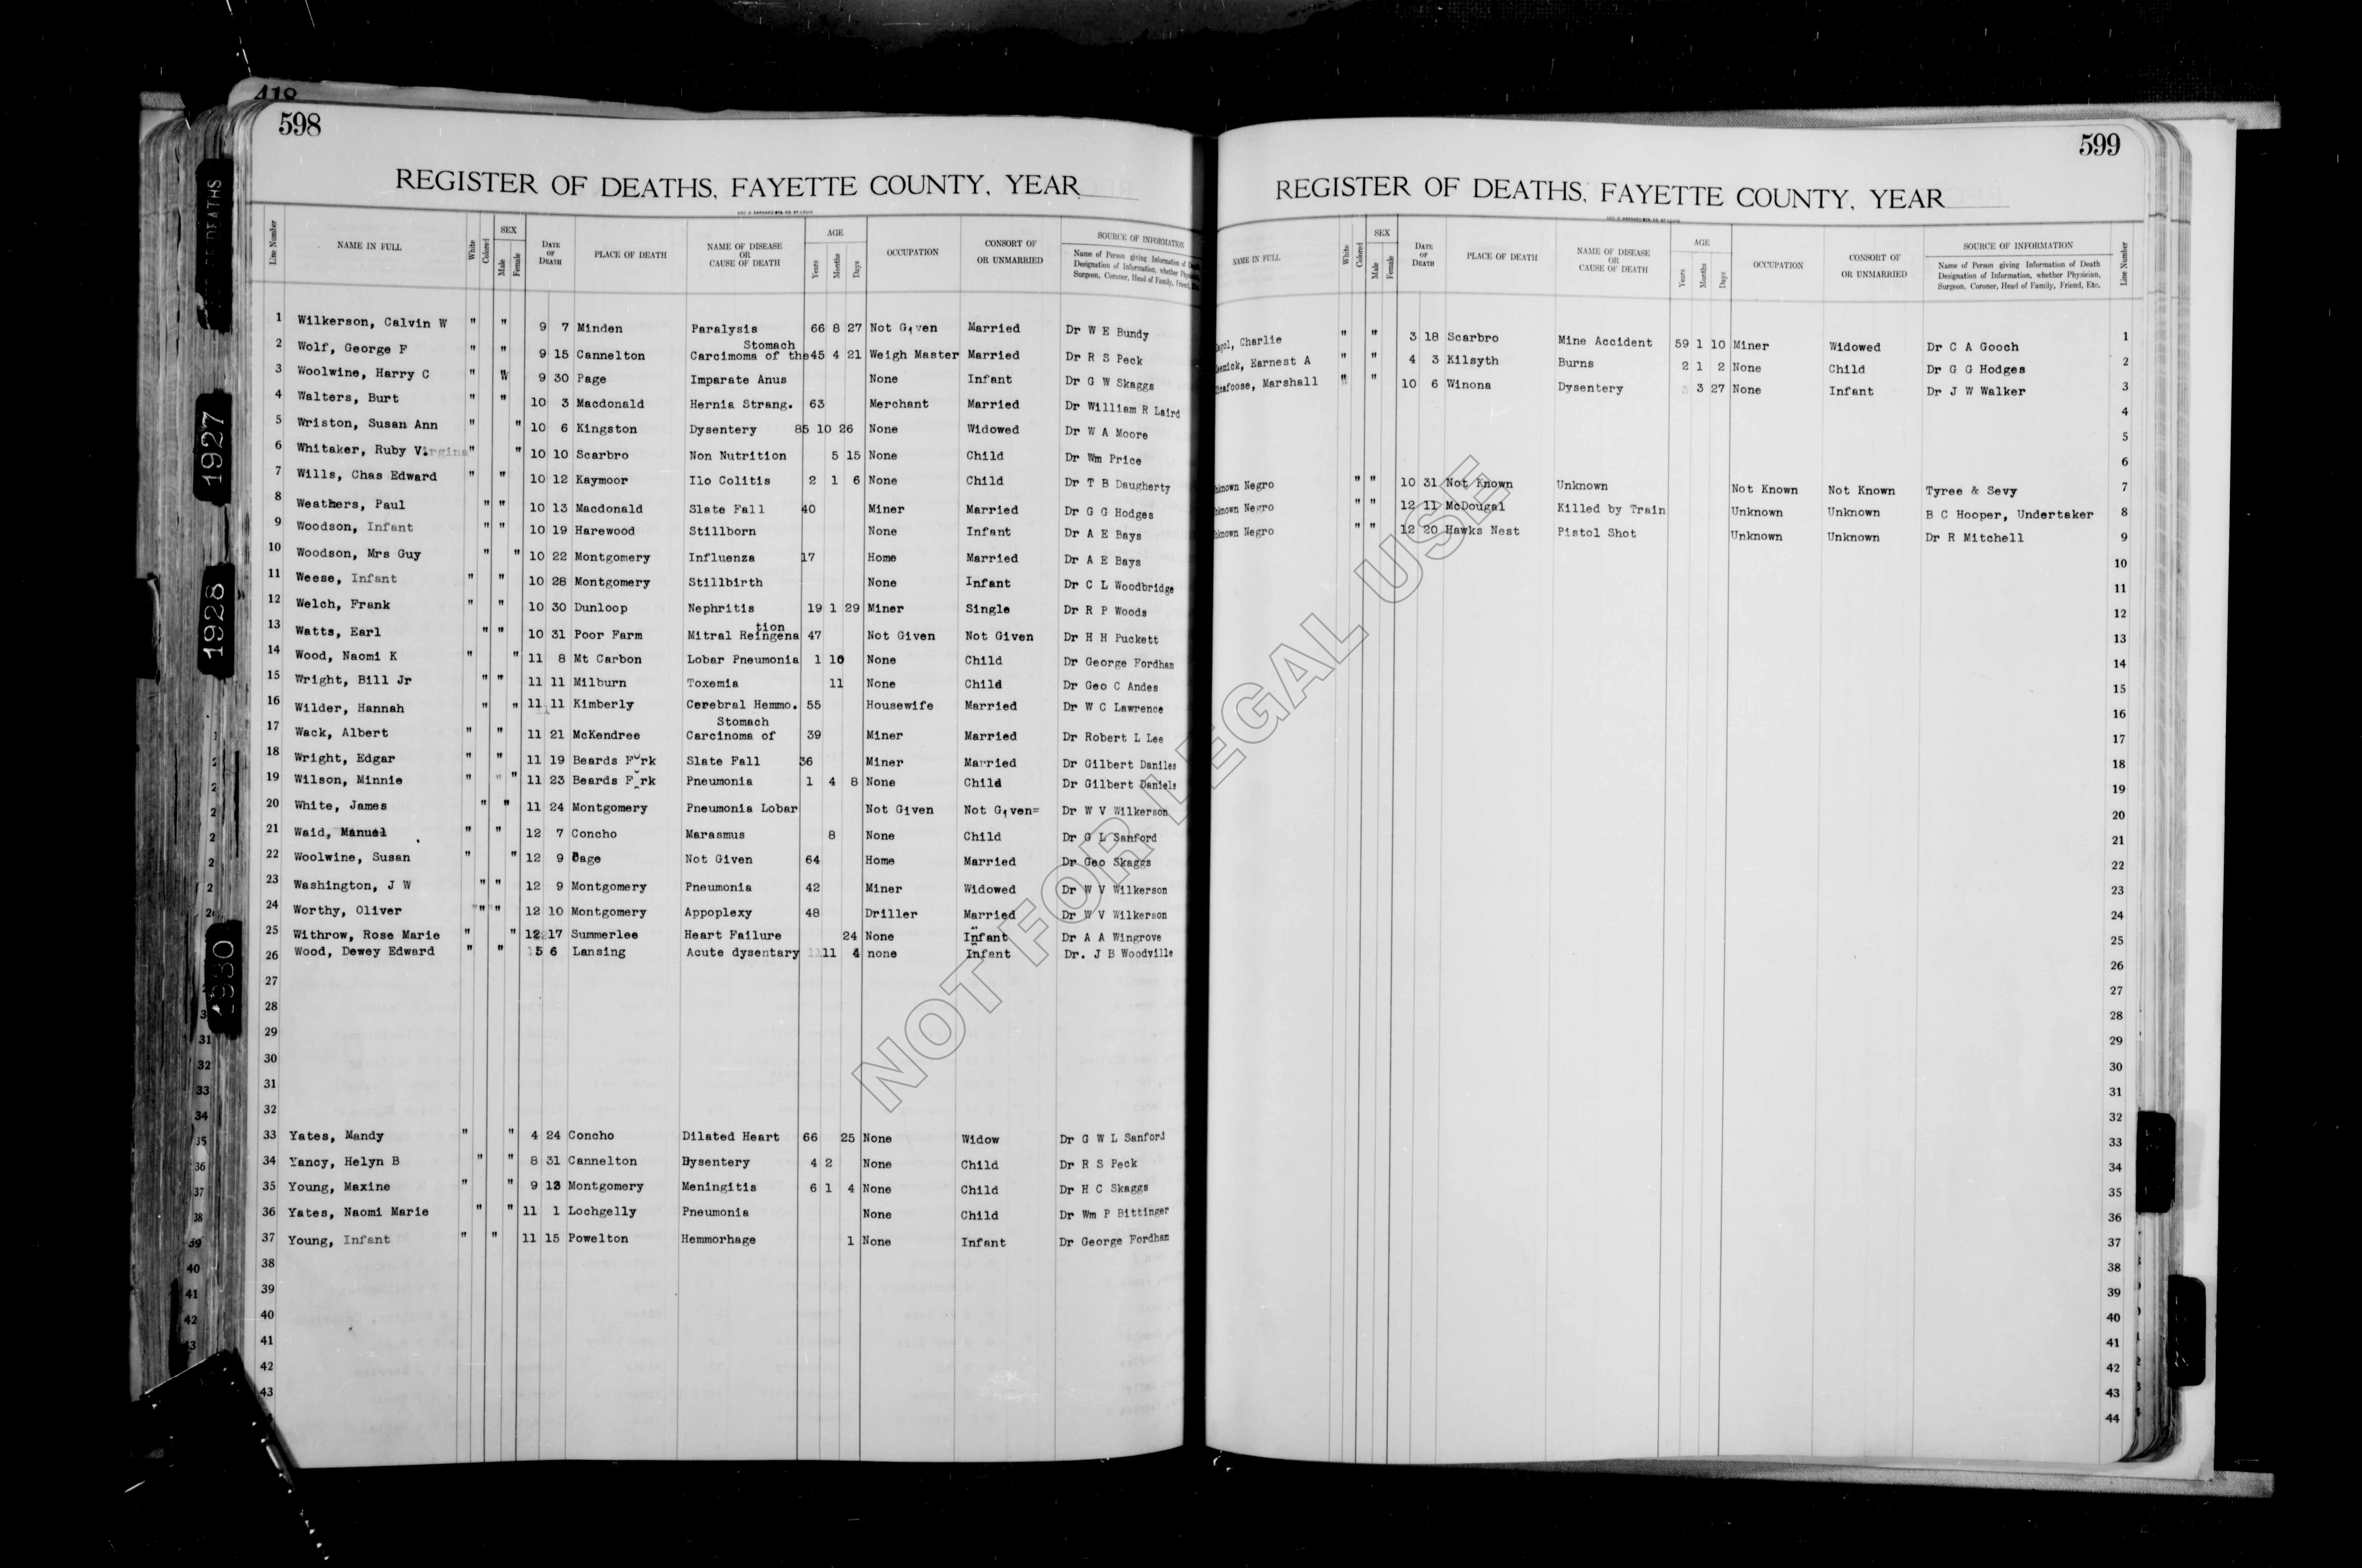 418
598
REGISTER OF DEATHS, FAYETTE COUNTY, YEAR
Line Number NAME IN FULL White Colored SEX Male Female DATE OF DEATH PLACE OF DEATH NAME OF DISEASE OR CAUSE OF DEATH AGE Years Months Days OCCUPATION CONSORT OF OR UNMARRIED SOURCE OF INFORMATION
Name of Person giving Information of
Designation of Information, whether
Surgeon, Coroner, Head of Family, Friend,
1 Wilkerson, Calvin W " " 9 7 Minden Paralysis 66 8 27 Not Given Married Dr W E Bundy
2 Wolf, George F " " 9 15 Cannelton Carcimoma of the Stomach 45 4 21 Weigh Master Married Dr R S Peck
3 Woolwine, Harry C " " 9 30 Page Imparate Anus None Infant Dr G W Skaggs
4 Walters, Burt " " 10 3 Macdonald Hernia Strang. 63 Merchant Married Dr William R Laird
5 Wriston, Susan Ann " " 10 6 Kingston Dysentery 85 10 26 None Widowed Dr W A Moore
6 Whitaker, Ruby Virgina " " 10 10 Scarbro Non Nutrition 5 15 None Child Dr Wm Price
7 Wills, Chas Edward " " 10 12 Kaymoor Ilo Colitis 2 1 6 None Child Dr T B Daugherty
8 Weathers, Paul " " 10 13 Macdonald Slate Fall 40 Miner Married Dr G G Hodges
9 Woodson, Infant " " 10 19 Harewood Stillborn None Infant Dr A E Bays
10 Woodson, Mrs Guy " " 10 22 Montgomery Influenza 17 Home Married Dr A E Bays
11 Weese, Infant " " 10 28 Montgomery Stillbirth None Infant Dr C L Woodbridge
12 Welch, Frank " " 10 30 Dunloop Nephritis 19 1 29 Miner Single Dr R P Woods
13 Watts, Earl " " 10 31 Poor Farm Mitral Reingenation 47 Not Given Not Given Dr H H Puckett
14 Wood, Naomi K " " 11 8 Mt Carbon Lobar Pneumonia 1 10 None Child Dr George Fordham
15 Wright, Bill Jr " " 11 11 Milburn Toxemia 11 None Child Dr Geo C Andes
16 Wilder, Hannah " " 11 11 Kimberly Cerebral Hemmo. 55 Housewife Married Dr W C Lawrence
17 Wack, Albert " " 11 21 McKendree Carcinoma of Stomach 39 Miner Married Dr Robert L Lee
18 Wright, Edgar " " 11 19 Beards Fork Slate Fall 36 Miner Married Dr Gilbert Daniles
19 Wilson, Minnie " " " 11 23 Beards Fork Pneumonia 1 4 8 None Child Dr Gilbert Daniels
20 White, James " " 11 24 Montgomery Pneumonia Lobar Not Given Not Given= Dr W V Wilkerson
21 Waid, Manuel " " 12 7 Concho Marasmus 8 None Child Dr G L Sanford
22 Woolwine, Susan " " 12 9 Page Not Given 64 Home Married Dr Geo Skaggs
23 Washington, J W " " 12 9 Montgomery Pneumonia 42 Miner Widowed Dr W V Wilkerson
24 Worthy, Oliver " " " 12 10 Montgomery Appoplexy 48 Driller Married Dr W V Wilkerson
25 Withrow, Rose Marie " " 12 17 Summerlee Heart Failure 24 None Infant Dr A A Wingrove
26 Wood, Dewey Edward " " 5 6 Lansing Acute dysentary 11 4 none Infant Dr. J B Woodville
27
28
29
30
31
32
33 Yates, Mandy " " 4 24 Concho Dilated Heart 66 25 None Widow Dr G W L Sanford
34 Yancy, Helyn B " " 8 31 Cannelton Dysentery 4 2 None Child Dr R S Peck
35 Young, Maxine " " 9 Montgomery Meningitis 6 1 4 None Child Dr H C Skaggs
36 Yates, Naomi Marie " " 11 1 Lochgelly Pneumonia None Child Dr Wm P Bittinger
37 Young, Infant " " 11 15 Powelton Hemmorhage 1 None Infant Dr George Fordham
38
39
40
41
42
43
599
REGISTER OF DEATHS, FAYETTE COUNTY, YEAR
NAME IN FULL White Colored SEX Male Female DATE OF DEATH PLACE OF DEATH NAME OF DISEASE OR CAUSE OF DEATH AGE Years Months Days OCCUPATION CONSORT OF OR UNMARRIED SOURCE OF INFORMATION Line Number
Name of Person giving Information of Death
Designation of Information, whether Physician,
Surgeon, Coroner, Head of Family, Friend, Etc.
Charlie " " 3 18 Scarbro Mine Accident 59 1 10 Miner Widowed Dr C A Gooch 1
Earnest A " " 4 3 Kilsyth Burns 2 1 2 None Child Dr G G Hodges 2
Marshall " " 10 6 Winona Dysentery 3 27 None Infant Dr J W Walker 3
4
5
6
Negro " " 10 31 Not Known Unknown Not Known Not Known Tyree & Sevy 7
Negro " " 12 11 McDougal Killed by Train Unknown Unknown B C Hooper, Undertaker 8
Negro " " 12 20 Hawks Nest Pistol Shot Unknown Unknown Dr R Mitchell 9
10
11
12
13
14
15
16
17
18
19
20
21
22
23
24
25
26
27
28
29
30
31
32
33
34
35
36
37
38
39
40
41
42
43
44
DEATHS
1927
1928
1930
31
32
33
34
35
36
37
38
39
40
41
42
NOT FOR LEGAL USE